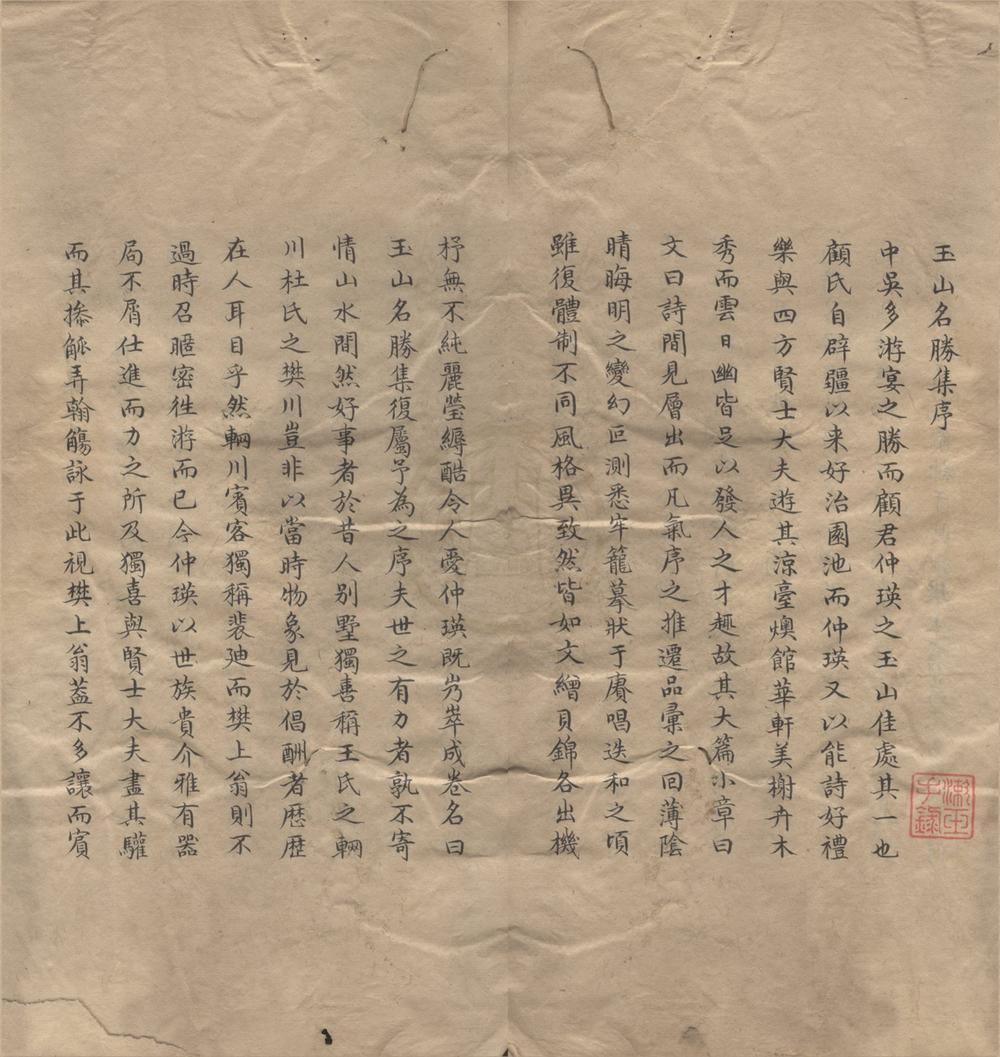 玉山名勝集序
中吳多游宴之勝而顧君仲瑛之玉山佳處其一也
顧氏自辟疆以来好治園池而仲瑛又以能詩好禮
樂與四方賢士大夫遊其涼臺燠館華軒美榭卉木
秀而雲日幽皆足以發人之才趣故其大篇小章曰
文曰詩間見層出而凡氣序之推遷品彙之回薄陰
晴晦明之變幻叵測悉牢籠摹狀于賡唱迭和之頃
雖復體制不同風格異致然皆如文繒貝錦各出機
杼無不純麗瑩縟酷令人愛仲瑛既彙萃成卷名曰
玉山名勝集復屬予為之序夫世之有力者孰不寄
情山水間然好事者於昔人别墅獨喜稱王氏之輞
川杜氏之樊川豈非以當時物象見於倡酬者歷歷
在人耳目乎然輞川賓客獨稱裴廸而樊上翁則不
過時召暱密徃游而已今仲瑛以世族貴介雅有器
局不屑仕進而力之所及獨喜與賢士大夫盡其驩
而其摻觚弄翰觴詠于此視樊上翁葢不多讓而賓
手錄